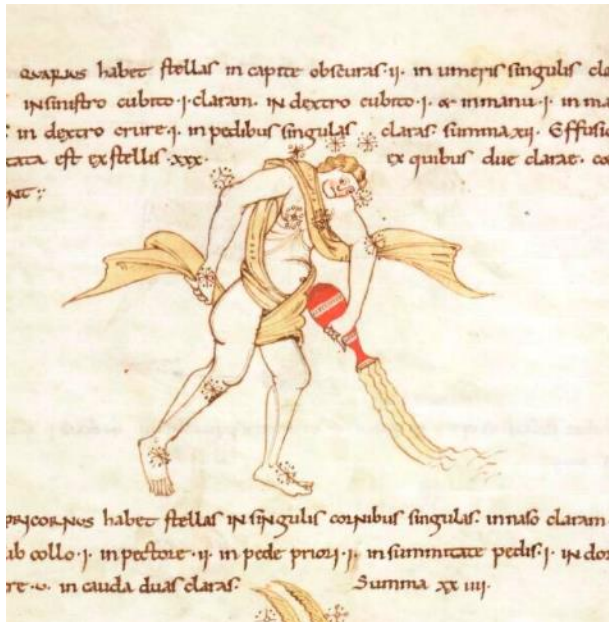 QUARIUS habet stellas in capite obscuras·ii· in umeris singulis cla
in sinistro cubito·i·claram. IN dextro cubito·i· & in manu·i· in ma
in dextro crure·i· in pedibus singulas claras. summa xii. Effusio
tata est ex stellis·xxx· ex quibus due clarae. co
NT:
PRICORNUS habet stellas IN singulis cornibus singulas. in naso claram
ub collo·i· in pectore·ii· in pede priori·i· in summitate pedis·i· IN dor
re·u· in cauda duas claras. Summa xx iiii·